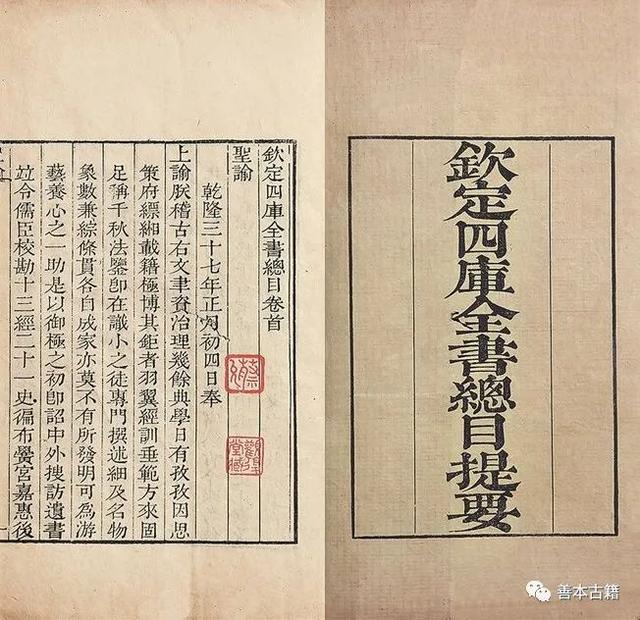 欽定四庫全書總目提要
欽定四庫全書總目卷首
聖諭
乾隆三十七年正月初四日奉
上諭朕稽古右文聿資治理幾餘典學日有孜孜因思
策府縹緗載籍極博其鉅者羽翼經訓垂範方來固
足稱千秋法鑒卽在識小之徒專門撰述細及名物
象數兼綜條貫各自成家亦莫不有所發明可為游
藝養心之一助是以御極之初卽詔中外搜訪遺書
竝令儒臣校勘十三經二十一史徧布黌宮嘉惠後
善本古籍